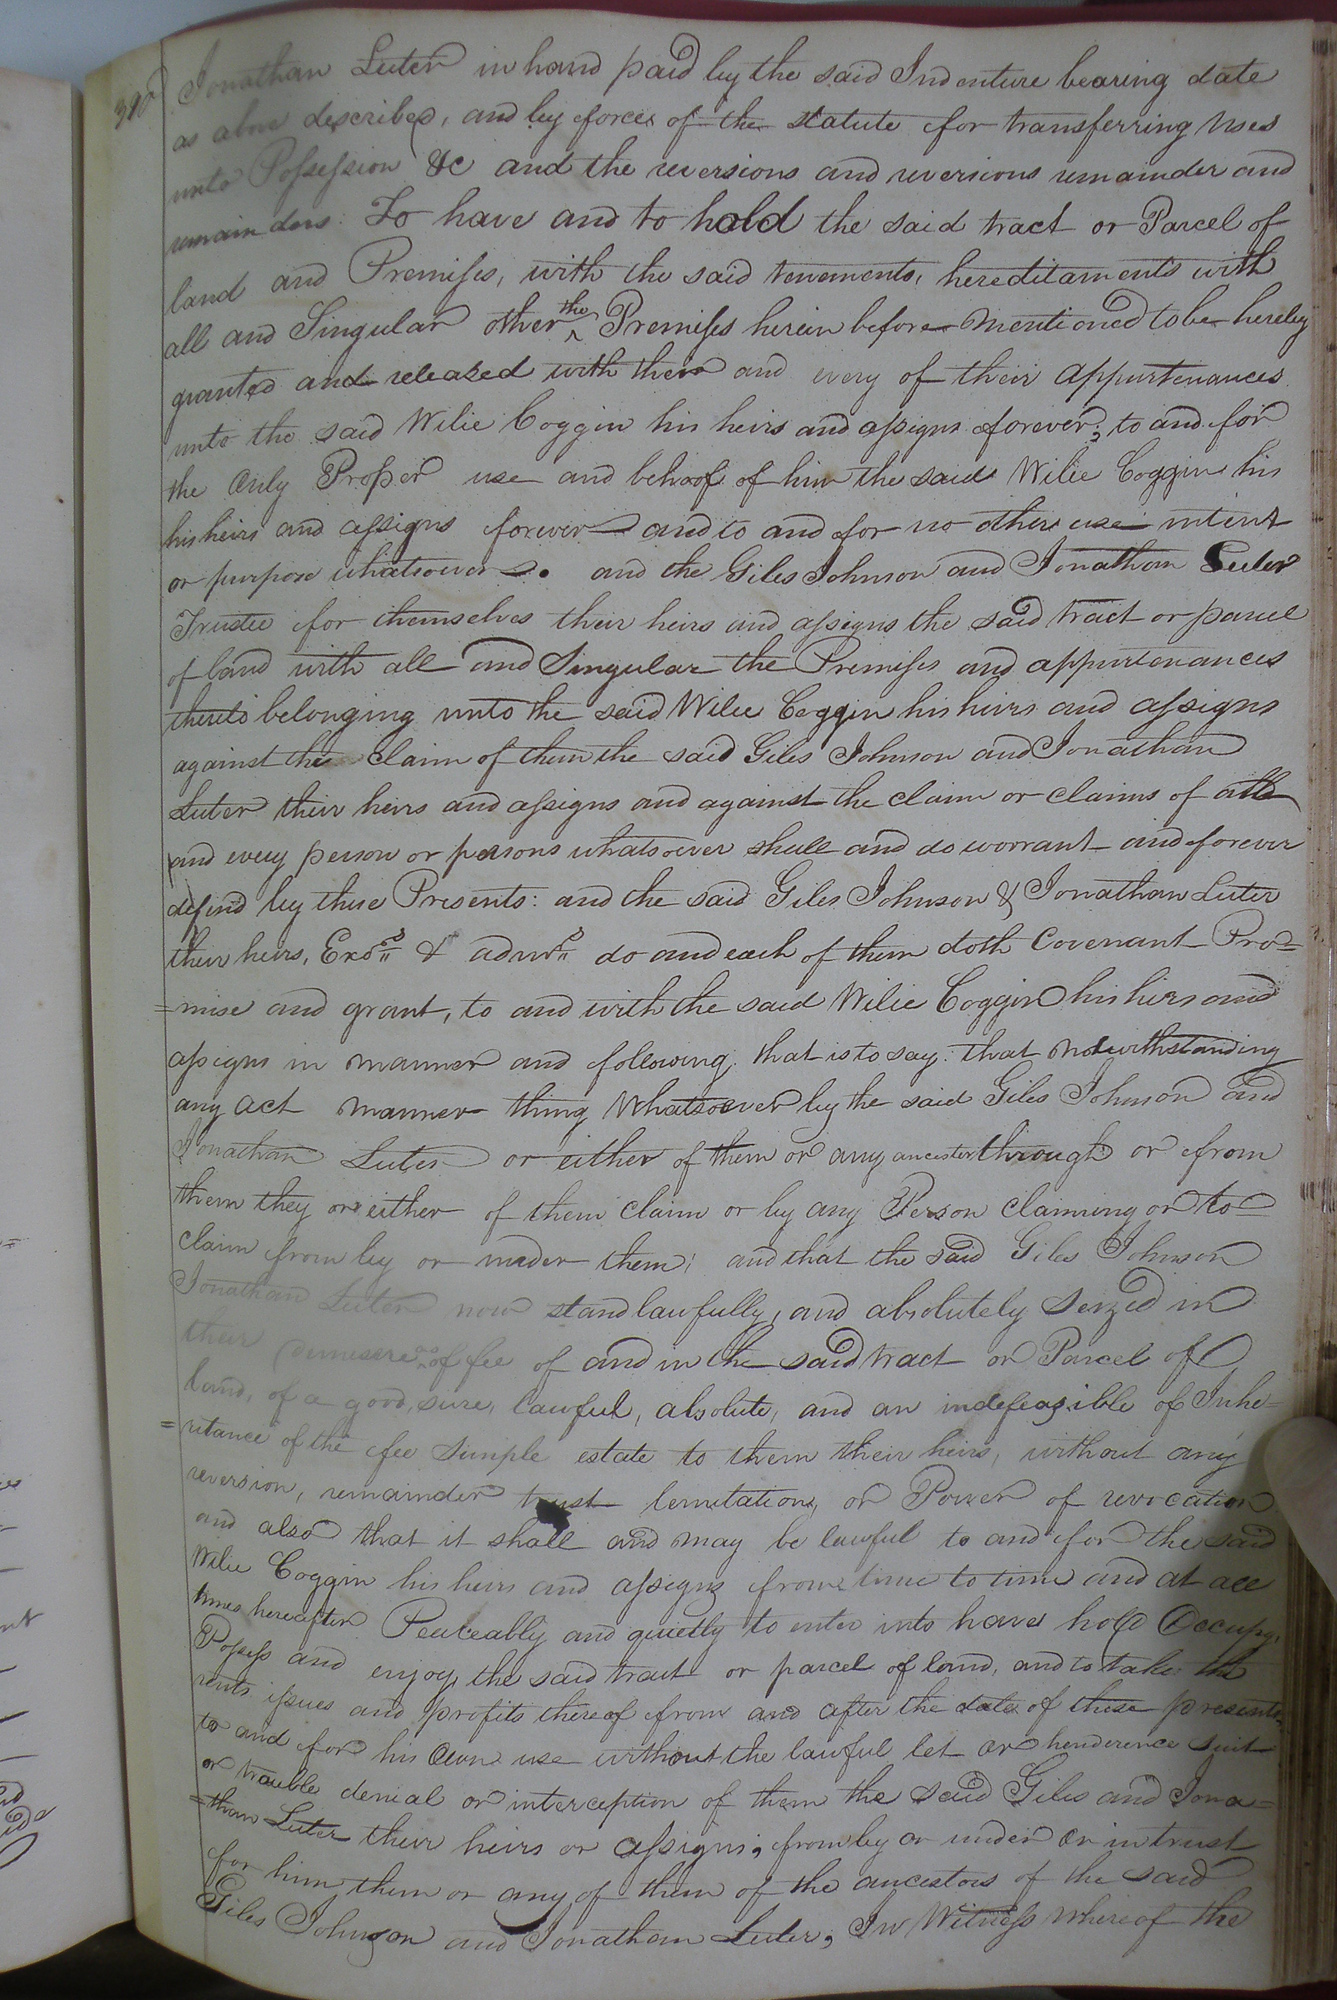 390
Jonathan Luter in hand paid by the said Indenture bearing date
as above described, and by force of the statute for transferring uses
unto Possession &c and the reversions and reversions remainder and
remainders To have and to hold the said tract or Parcel of
land and Premises, with the said tenements, hereditaments with
all and Singular other the Premises herein before mentioned to be hereby
granted and released with their and every of their appurtenances
unto the said Wilie Coggin his heirs and assigns forever; to and for
the only Proper use and behoof of him the said Wilie Coggin his
his heirs and assigns forever and to and for no other use intent
or purpose whatsoever. and the Giles Johnson and Jonathan Luter
Trustee for themselves their heirs and assigns the said tract or parcel
of land with all and Singular the Premises and appurtenances
thereto belonging unto the said Wilie Coggin his heirs and assigns
against the claim of them the said Giles Johnson and Jonathan
Luter their heirs and assigns and against the claim or claims of all
and every person or persons whatsoever shall and do warrant and forever
defind by these Presents: and the said Giles Johnson & Jonathan Luter
their heirs, Exors & admrs do and each of them doth Covenant Pro=
=mise and grant, to and with the said Wilie Coggin his hiers and
assigns in manner and following that is to say: that notwithstanding
any act manner thing whatsoever by the said Giles Johnson and
Jonathan Luter or either of them or any ancester through or from
them they or either of them claim or by any Person claiming or to
claim from by or under them; and that the said Giles Johnson
Jonathan Luter now stand lawfully, and absolutely Seized in
their of fee of and in the said tract or Parcel of
land, of a good, sure, lawful, absolute, and an indefeasible of Inhe=
=ritance of the fee Simple estate to them their heirs, without any
reversion, remainder trust lemitations, or Power of revocation
and also that it shall and may be lawful to and for the said
Wilie Coggin his heirs and assigns from time to time and at all
times hereafter Peaceably and quietly to enter into have hold Occupy,
Possess and enjoy, the said tract or parcel of land, and to take the
rents issues and profits thereof from and after the date of these presents
to and for his Own use without the lawful let or henderence suit
or trouble denial or interception of them the said Giles and Jona=
=than Luter their heirs or assigns; from by or under or in trust
for him them or any of them of the ancestors of the said
Giles Johnson and Jonathan Luter; In Witness whereof the